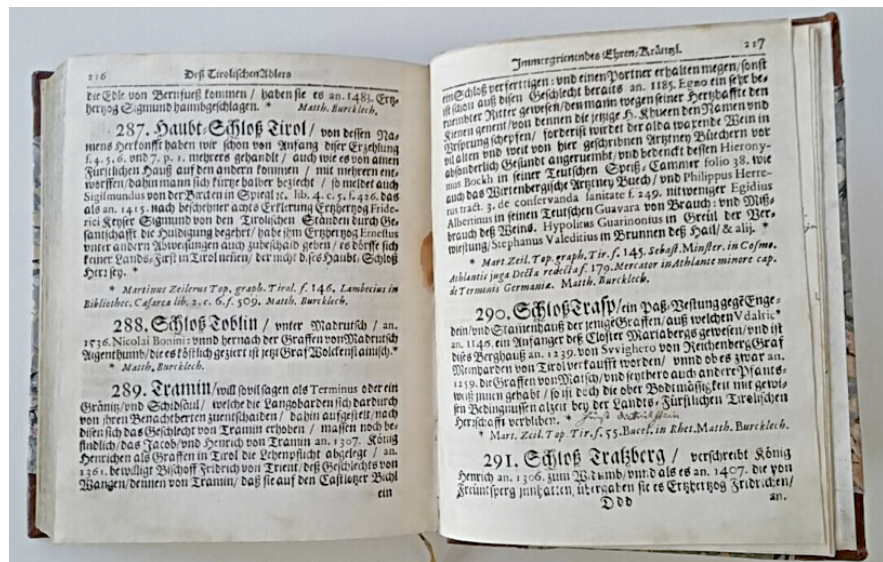 216 Deß Tirolischen Adlers
die Edle von Bernfueß kommen / haben sie es an. 1483. Ertz-
hertzog Sigmund haimbgeschlagen. * Matth. Burcklech.
287. Haubt-Schloß Tirol / von dessen Na-
mens Herkonfft haben wir schon von Anfang diser Erzehlung
f. 4. 5. 6. vnd 7. p. 1. mehrers gehandlt / auch wie es von ainen
Fürstlichen Hauß auf den andern kommen / mit mehrern ent-
worffen / dahin man sich kürtze halber beziecht / so meldet auch
Sigismundus von der Bircken in Spiegl ꝛc. lib. 4. c. 5. f. 426. das
als an. 1415. nach beschehner achts Erklerung Ertzhertzog Fride-
rici Keyser Sigmund von den Tirolischen Ständen durch Ge-
santschafft die Huldigung begehrt / habe ihm Ertzhertzog Ernestus
vnter andern Abweisungen auch zubeschaid geben / es dörffe sich
keiner Lands-Fürst in Tirol neñen / der nicht dises Haubt-Schloß
Herr sey. *
* Martinus Zeilerus Top. graph. Tirol. f. 146. Lambecius in
Bibliothec. Cæsarea lib. 2. c. 6. f. 509. Matth. Burcklech.
288. Schloß Toblin / vnter Madrutsch / an.
1536. Nicolai Bonini: vnnd hernach der Graffen von Madrutsch
Aigenthumb / die es köstlich geziert ist jetzt Graf Wolckenstainisch. *
* Matth. Burcklech.
289. Tramin / will sovil sagen als Terminus oder ein
Gränitz / vnd Schidsaul / welche die Langobarden sich dardurch
von jhren Benachtberten zuentschaiden / dahin aufgestelt / nach
disen sich das Geschlecht von Tramin erhoben / massen noch be-
findlich / das Jacob / vnd Henrich von Tramin an. 1307. König
Henrichen als Graffen in Tirol die Lehenpflicht abgelegt / an.
1361. bewilligt Bischoff Fridrich von Trient / deß Geschlechts von
Wangen / dennen von Tramin / daß sie auf den Castlotzer Bichl
ein
Immergrienendes Ehren-Kräntzl. 217
ein Schloß verfertigen: vnd einen Portner erhalten megen / sonst
ist schon auß disen Geschlecht bereits an. 1185. Egno ein sehr be-
ruembter Ritter gewesen / den mann wegen seiner Hertzhaffte den
Kienen genent / von dennen die jetzige H. Khuen den Namen vnd
Vrsprung schepfen / forderist wirdet der alda waxende Wein in
vil alten vnd weit von hier geschribnen Artzney Büechern vor
absonderlich Gesundt angeruembt / vnd bedenckt dessen Hierony-
mus Bockh in seiner Teutschen Speiß-Cammer folio 38. wie
auch das Wirtenbergische Artzney Buech / vnd Philippus Herre-
rus tract. 3. de conservanda sanitate f. 249. mit weniger Egidius
Albertinus in seinen Teutschen Guavara von Brauch: vnd Miß-
brauch deß Weins. Hypolitus Guarinonius in Greül der Ver-
wiestung / Stephanus Valeditius in Brunnen deß Hail / & alij. *
* Mart. Zeil. Top. graph. Tir. f. 145. Sebast. Minster. in Cosmo.
Athlantis juga Decta redecta f. 179. Mercator in Athlante minore cap.
de Terminis Germaniæ. Matth. Burcklech.
290. Schloß Trasp / ein Paß-Vestung gegẽ Enge-
dein / vnd Stamenhauß der jenige Graffen / auß welchen Vdalric*
an. 1146. ein Anfanger deß Closter Mariabergs gewesen / vnd ist
dises Berghauß an. 1239. von Svvighero von Reichenberg Graf
Meinharden von Tirol verkaufft worden / vnnd ob es zwar an.
1259. die Graffen von Matsch / vnd seythero auch andere Pfants-
weiß innen gehabt / so ist dech die ober Bodtmässigkeit mit gewi-
sen Bedingnussen alzeit bey der Landts-Fürstlichen Tirolischen
Herrschafft verbliben. *
* Mart. Zeil. Top. Tir. f. 55. Bucel. in Rhet. Matth. Burcklech.
291. Schloß Tratzberg / verschreibt König
Henrich an. 1306. zum Widumb / vnnd als es an. 1407. die von
Freüntsperg innhatten, übergaben sie es Ertzhertzog Fridrichen /
Ddd an.